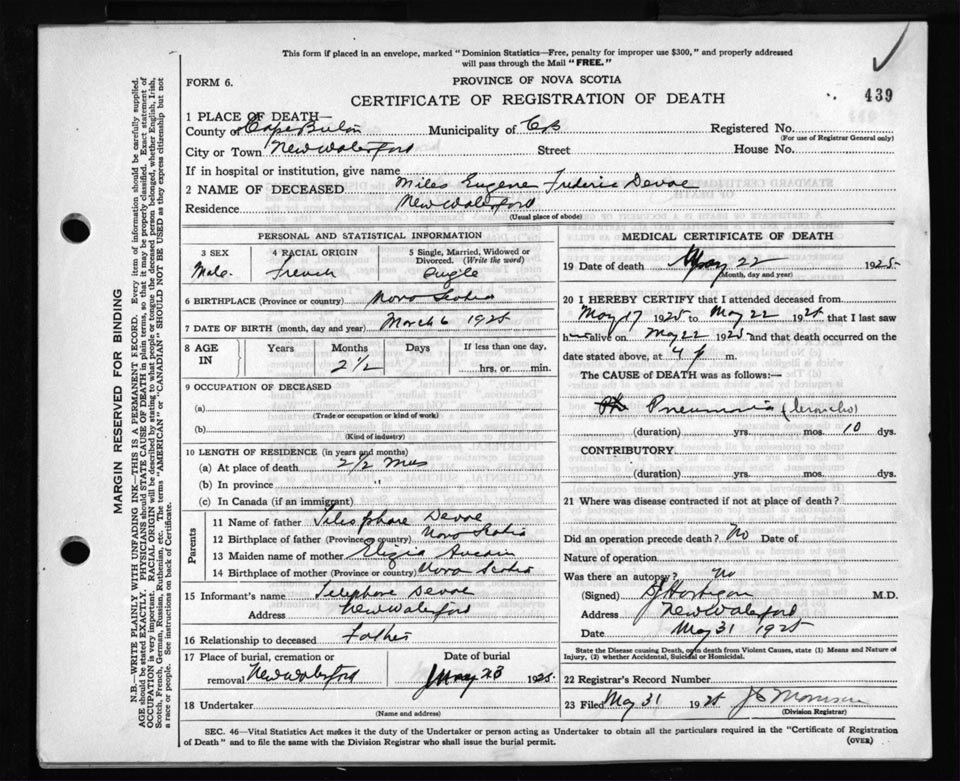 This form if placed in an envelope, marked "Dominion Statistics—Free, penalty for improper use $300," and properly addressed
will pass through the Mail "FREE."
FORM 6.
PROVINCE OF NOVA SCOTIA
439
CERTIFICATE OF REGISTRATION OF DEATH
1 PLACE OF DEATH—
County of Cape Breton Municipality of CB Registered No.
(For use of Registrar General only)
City or Town New Waterford Street House No.
If in hospital or institution, give name
2 NAME OF DECEASED Miles Eugene Frederic Devoe
Residence New Waterford
(Usual place of abode)
PERSONAL AND STATISTICAL INFORMATION
3 SEX 4 RACIAL ORIGIN 5 Single, Married, Widowed or
Divorced. (Write the word)
Male. French Single
6 BIRTHPLACE (Province or country) Nova Scotia
7 DATE OF BIRTH (month, day and year) March 6 1925
8 AGE IN Years Months Days If less than one day,
2 1/2 hrs. or min.
9 OCCUPATION OF DECEASED
(a)
(Trade or occupation or kind of work)
(b)
(Kind of industry)
10 LENGTH OF RESIDENCE (in years and months)
(a) At place of death 2 1/2 mos
(b) In province "
(c) In Canada (if an immigrant)
Parents
11 Name of father Telesphore Devoe
12 Birthplace of father (Province or country) Nova Scotia
13 Maiden name of mother
14 Birthplace of mother (Province or country) Nova Scotia
15 Informant's name Telephore Devoe
Address New Waterford
16 Relationship to deceased Father
17 Place of burial, cremation or Date of burial
removal New Waterford May 23 1925
18 Undertaker
(Name and address)
MEDICAL CERTIFICATE OF DEATH
19 Date of death May 22 1925
(Month, day and year)
20 I HEREBY CERTIFY that I attended deceased from
May 17 1925 to May 22 1925 that I last saw
h alive on May 22 1925 and that death occurred on the
date stated above, at 4 p m.
The CAUSE of DEATH was as follows:—
Pneumonia (broncho)
(duration) yrs. mos. 10 dys.
CONTRIBUTORY
(duration) yrs. mos. dys.
21 Where was disease contracted if not at place of death?
Did an operation precede death? No Date of
Nature of operation
Was there an autopsy? No
(Signed) M.D.
Address New Waterford
Date May 31 1925
State the Disease causing Death, or in death from Violent Causes, state (1) Means and Nature of
Injury, (2) whether Accidental, Suicidal or Homicidal.
22 Registrar's Record Number
23 Filed May 31 1925
(Division Registrar)
SEC. 46—Vital Statistics Act makes it the duty of the Undertaker or person acting as Undertaker to obtain all the particulars required in the "Certificate of Registration
of Death" and to file the same with the Division Registrar who shall issue the burial permit.
(OVER)
MARGIN RESERVED FOR BINDING
N.B.—WRITE PLAINLY WITH UNFADING INK—THIS IS A PERMANENT RECORD. Every item of information should be carefully supplied.
AGE should be stated EXACTLY. PHYSICIANS should STATE CAUSE OF DEATH in plain terms, so that it may be properly classified. Exact statement of
OCCUPATION is very important. RACIAL ORIGIN will be described by stating to what people or tongue the deceased person belonged, whether English, Irish,
Scotch, French, German, Russian, Ruthenian, etc. The terms "AMERICAN" or "CANADIAN" SHOULD NOT BE USED as they express citizenship but not
a race or people. See instructions on back of Certificate.